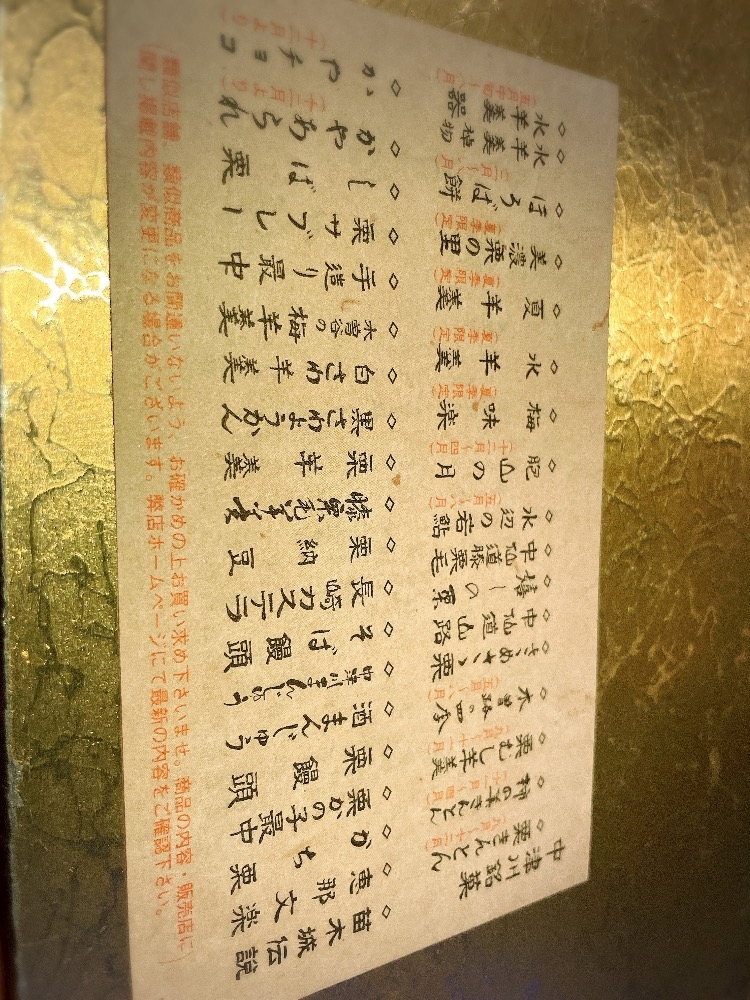 中津川銘菓
◇栗きんとん
(九月〜十二月)
◇柿の美きんとん
(十一月〜四月)
◇栗むし羊羹
(九月〜十一月)
◇木曽路の四季
(五月〜八月)
◇ささめささ栗
◇中仙道山路
◇嬉しの栗
◇中仙道膝栗毛
◇水辺の若鮎
(五月〜八月)
◇肥山の月
(十二月〜四月)
◇梅味楽
(夏季限定)
◇水羊羹
(夏季限定)
◇夏羊羹
(夏季限定)
◇美濃栗の里
(夏季限定)
◇ほろば餅
(二月〜八月)
◇水羊羹棹物
◇水羊羹器
(五月中旬〜八月)
◇苗木城伝説
◇恵那文楽
◇かち栗
◇栗かの子最中
◇栗饅頭
◇酒まんじゅう
◇中津川まんじゅう
◇そば饅頭
◇長崎カステラ
◇栗納豆
◇膝栗毛羊羹
◇栗羊羹
◇黒さわようかん
◇白さわ羊羹
◇木曽谷の梅羊羹
◇手造り最中
◇栗サブレー
◇しば栗
◇かやあられ
(十二月より)
◇かやチョコ
(十二月より)
類似店舗、類似商品をお間違いないよう、お確かめの上お買い求め下さいませ。商品の内容・販売店に
関し掲載内容が変更になる場合がございます。弊店ホームページにて最新の内容をご確認下さい。